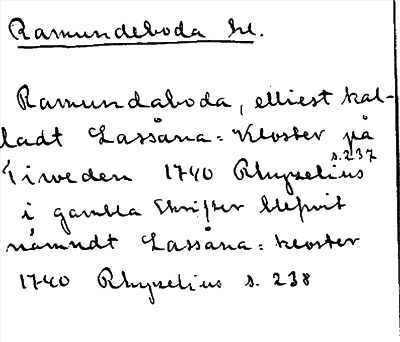 Ramundeboda hd.
Ramundaboda, elliest kal-
ladt Lassåna-Kloster på
Tiweden 1740 Rhyzelius s. 237
i gambla Skrifter blefwit
nämndt Lassåna-kloster
1740 Rhyzelius s. 238